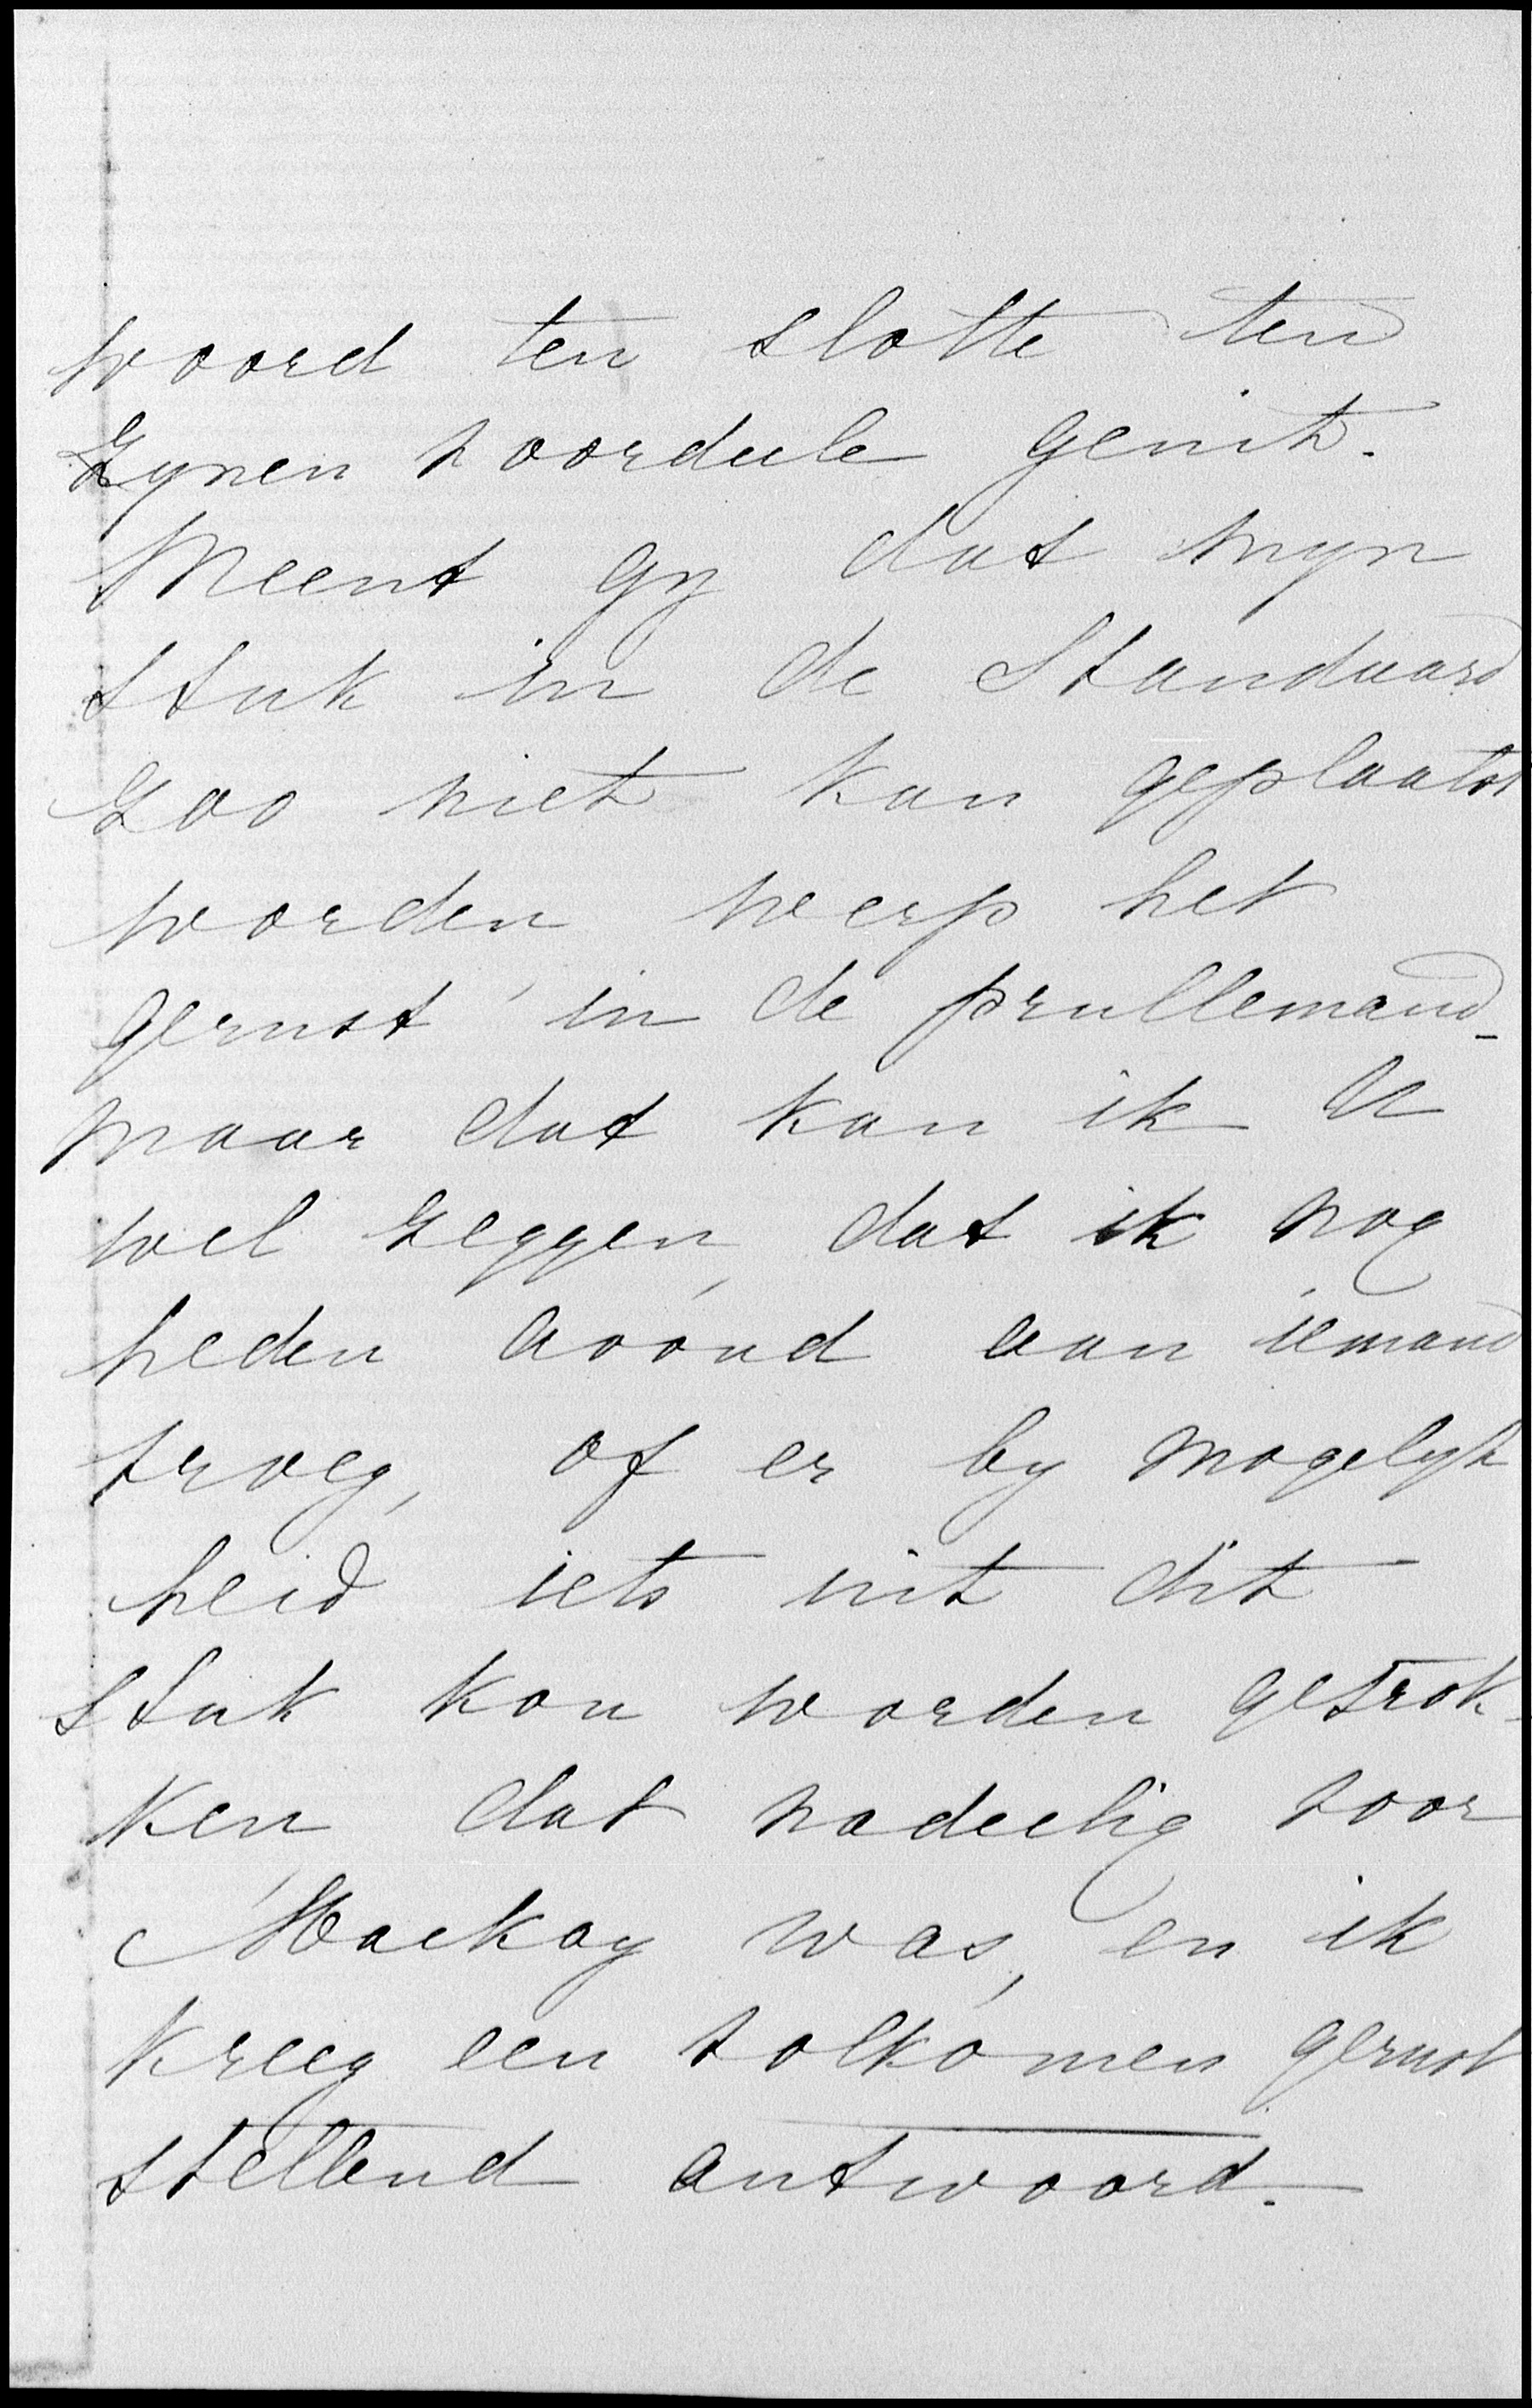 woord ten slotte ten
zynen voordeele geuit.
Meent gy dat myn
stuk in de Standaard
zoo niet kan geplaatst
worden werp het
gerust in de prullemand_
maar dat kan ik U
wel zeggen, dat ik nog
heden avond aan iemand
vroeg, of er by mogelyk
heid iets uit dit
stuk kon worden getrok-
ken, dat nadeelig voor
Mackay was, en ik
kreeg een volkomen gerust
stellend antwoord._